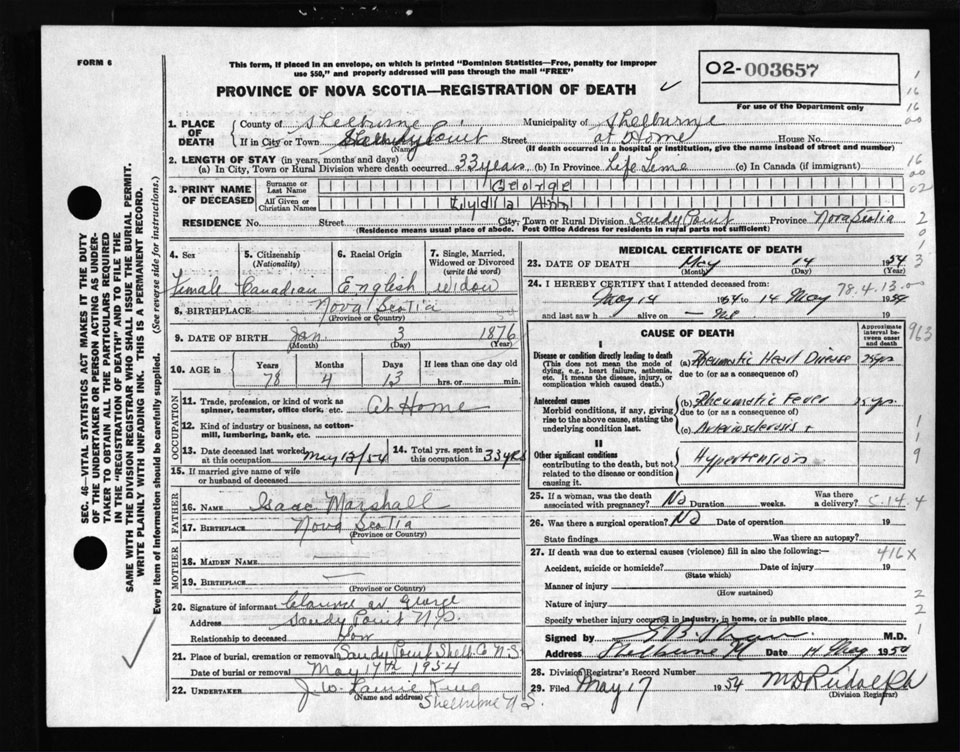 FORM 6
This form, if placed in an envelope, on which is printed "Dominion Statistics—Free, penalty for improper
use $50," and properly addressed will pass through the mail "FREE"
PROVINCE OF NOVA SCOTIA—REGISTRATION OF DEATH
02-003657
For use of the Department only
1. PLACE OF DEATH
County of Shelburne Municipality of Shelburne
If in City or Town Sandy Point Street at Home House No.
(Name) (If death occurred in a hospital or institution, give the name instead of street and number)
2. LENGTH OF STAY (in years, months and days)
(a) In City, Town or Rural Division where death occurred 33 years (b) In Province Life Time (c) In Canada (if immigrant)
3. PRINT NAME OF DECEASED
Surname or Last Name George
All Given or Christian Names Lydia Ann
RESIDENCE No. Street City, Town or Rural Division Sandy Point Province Nova Scotia
(Residence means usual place of abode. Post Office Address for residents in rural parts not sufficient)
4. Sex 5. Citizenship (Nationality) 6. Racial Origin 7. Single, Married, Widowed or Divorced (write the word)
Female Canadian English Widow
8. BIRTHPLACE Nova Scotia
(Province or Country)
9. DATE OF BIRTH Jan. 3 1876
(Month) (Day) (Year)
10. AGE in Years Months Days If less than one day
78 4 13 hrs. or min.
OCCUPATION
11. Trade, profession, or kind of work as spinner, teamster, office clerk, etc. At Home
12. Kind of industry or business, as cotton-mill, lumbering, bank, etc.
13. Date deceased last worked at this occupation May 13/54 14. Total yrs. spent in this occupation 33 yrs
15. If married give name of wife or husband of deceased
FATHER
16. NAME Isaac Marshall
17. BIRTHPLACE Nova Scotia
(Province or Country)
MOTHER
18. MAIDEN NAME —
19. BIRTHPLACE —
(Province or Country)
20. Signature of informant Clarence W. George
Address Sandy Point N.S.
Relationship to deceased Son
21. Place of burial, cremation or removal Sandy Point Shelb. Co N.S.
Date of burial or removal May 17th, 1954
22. UNDERTAKER J. W. Laurie King
(Name and address) Shelburne N.S.
MEDICAL CERTIFICATE OF DEATH
23. DATE OF DEATH May 14 1954
(Month) (Day) (Year)
24. I HEREBY CERTIFY that I attended deceased from: 78.4.13.00
May 14 1954 to 14 May 1954
and last saw h alive on 19
CAUSE OF DEATH
Approximate interval between onset and death
I
Disease or condition directly leading to death
(This does not mean the mode of dying, e.g., heart failure, asthenia, etc. It means the disease, injury, or complication which caused death.)
(a) Rheumatic Heart Disease 25 yrs
due to (or as a consequence of)
Antecedent causes
Morbid conditions, if any, giving rise to the above cause, stating the underlying condition last.
(b) Rheumatic Fever 25 yrs.
due to (or as a consequence of)
(c) Arteriosclerosis +
II
Other significant conditions
contributing to the death, but not related to the disease or condition causing it.
Hypertension
25. If a woman, was the death associated with pregnancy? No Duration weeks. Was there a delivery? 5.14.4
26. Was there a surgical operation? No Date of operation 19
State findings Was there an autopsy?
27. If death was due to external causes (violence) fill in also the following:— 416X
Accident, suicide or homicide? Date of injury 19
(State which)
Manner of injury
(How sustained)
Nature of injury
Specify whether injury occurred in industry, in home, or in public place
Signed by M.D.
Address Shelburne Date 14 May 1954
28. Division Registrar's Record Number
29. Filed May 17 1954 M D Rudolph
(Division Registrar)
SEC. 46—VITAL STATISTICS ACT MAKES IT THE DUTY
OF THE UNDERTAKER OR PERSON ACTING AS UNDER-
TAKER TO OBTAIN ALL THE PARTICULARS REQUIRED
IN THE "REGISTRATION OF DEATH" AND TO FILE THE
SAME WITH THE DIVISION REGISTRAR WHO SHALL ISSUE THE BURIAL PERMIT.
WRITE PLAINLY WITH UNFADING INK. THIS IS A PERMANENT RECORD.
Every item of information should be carefully supplied. (See reverse side for instructions.)